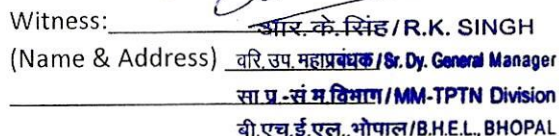 Witness: आर. के. सिंह/R.K. SINGH
(Name & Address) वरि. उप. महाप्रबंधक/Sr. Dy. General Manager
सा प्र.-सं म. विभाग/MM-TPTN Division
बी.एच.ई.एल., भोपाल/B.H.E.L., BHOPAL